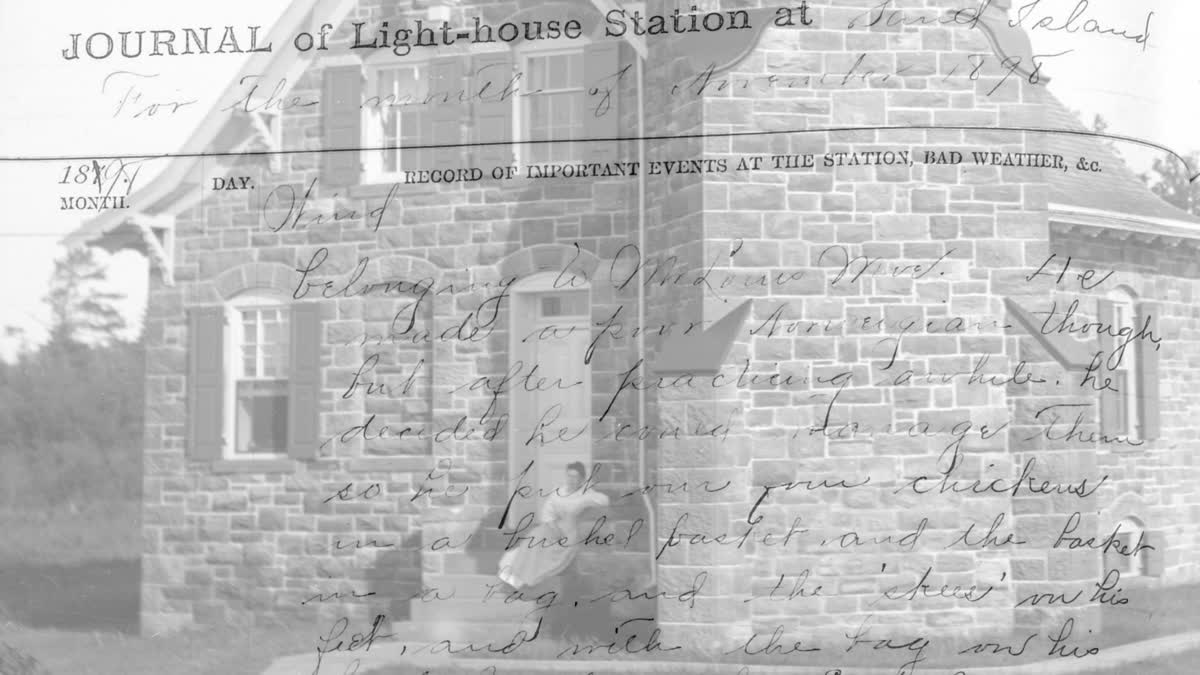 JOURNAL of Light-house Station at Sand Island
For the month of November 1898
1898
MONTH. DAY. RECORD OF IMPORTANT EVENTS AT THE STATION, BAD WEATHER, &C.
Wind
belonging to Mr Louis Moe. He
made a poor Norwegian though,
but after practicing awhile. he
decided he could manage them
so he put our four chickens
in a bushel basket, and the basket
in a bag, and the 'skees' on his
feet, and with the bag on his